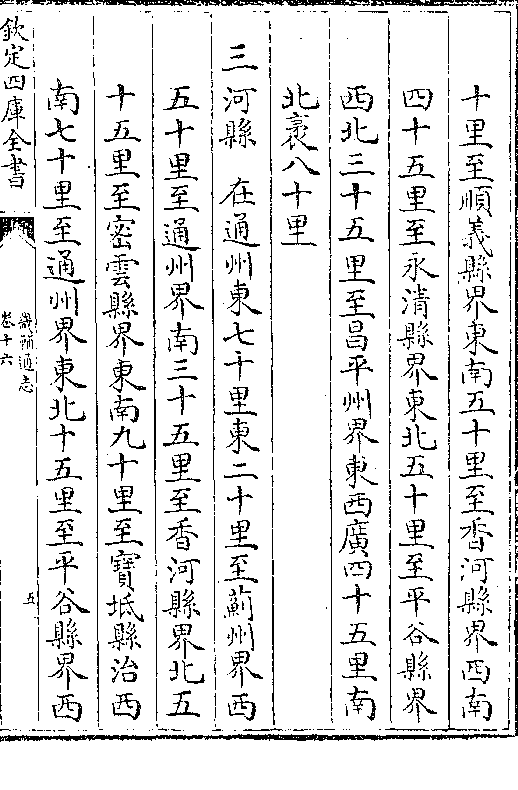 十里至順義縣界東南五十里至香河縣界西南
四十五里至永清縣界東北五十里至平谷縣界
西北三十五里至昌平州界東西廣四十五里南
北袤八十里
三河縣 在通州東七十里東二十里至薊州界西
五十里至通州界南三十五里至香河縣界北五
十五里至密雲縣界東南九十里至寶坻縣治西
南七十里至通州界東北十五里至平谷縣界西
欽定四庫全書
畿輔通志
卷十六
五